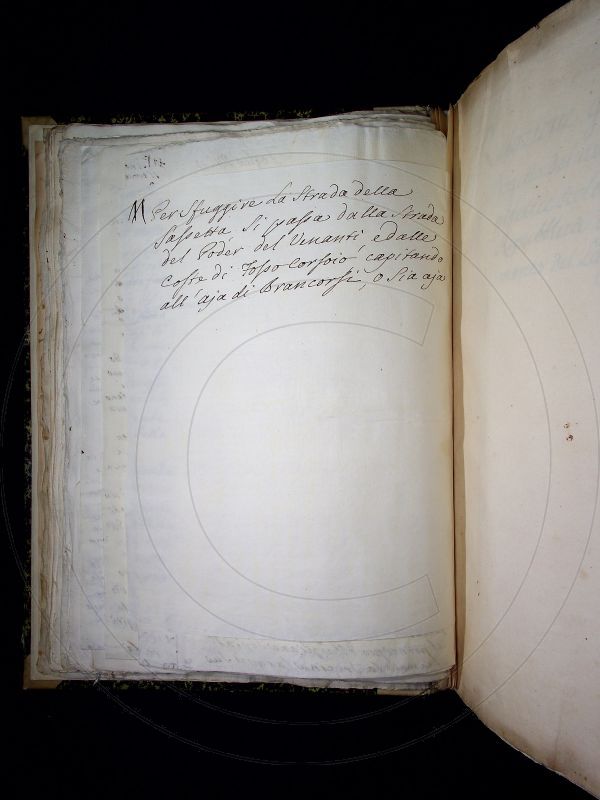 M Per Sfuggire La Strada della
Sassetta Si passa dalla Strada
del Poder del Venanti, e dalle
coste di Fosso Corsoio capitando
all'aja di Brancorsi, o Sia aja